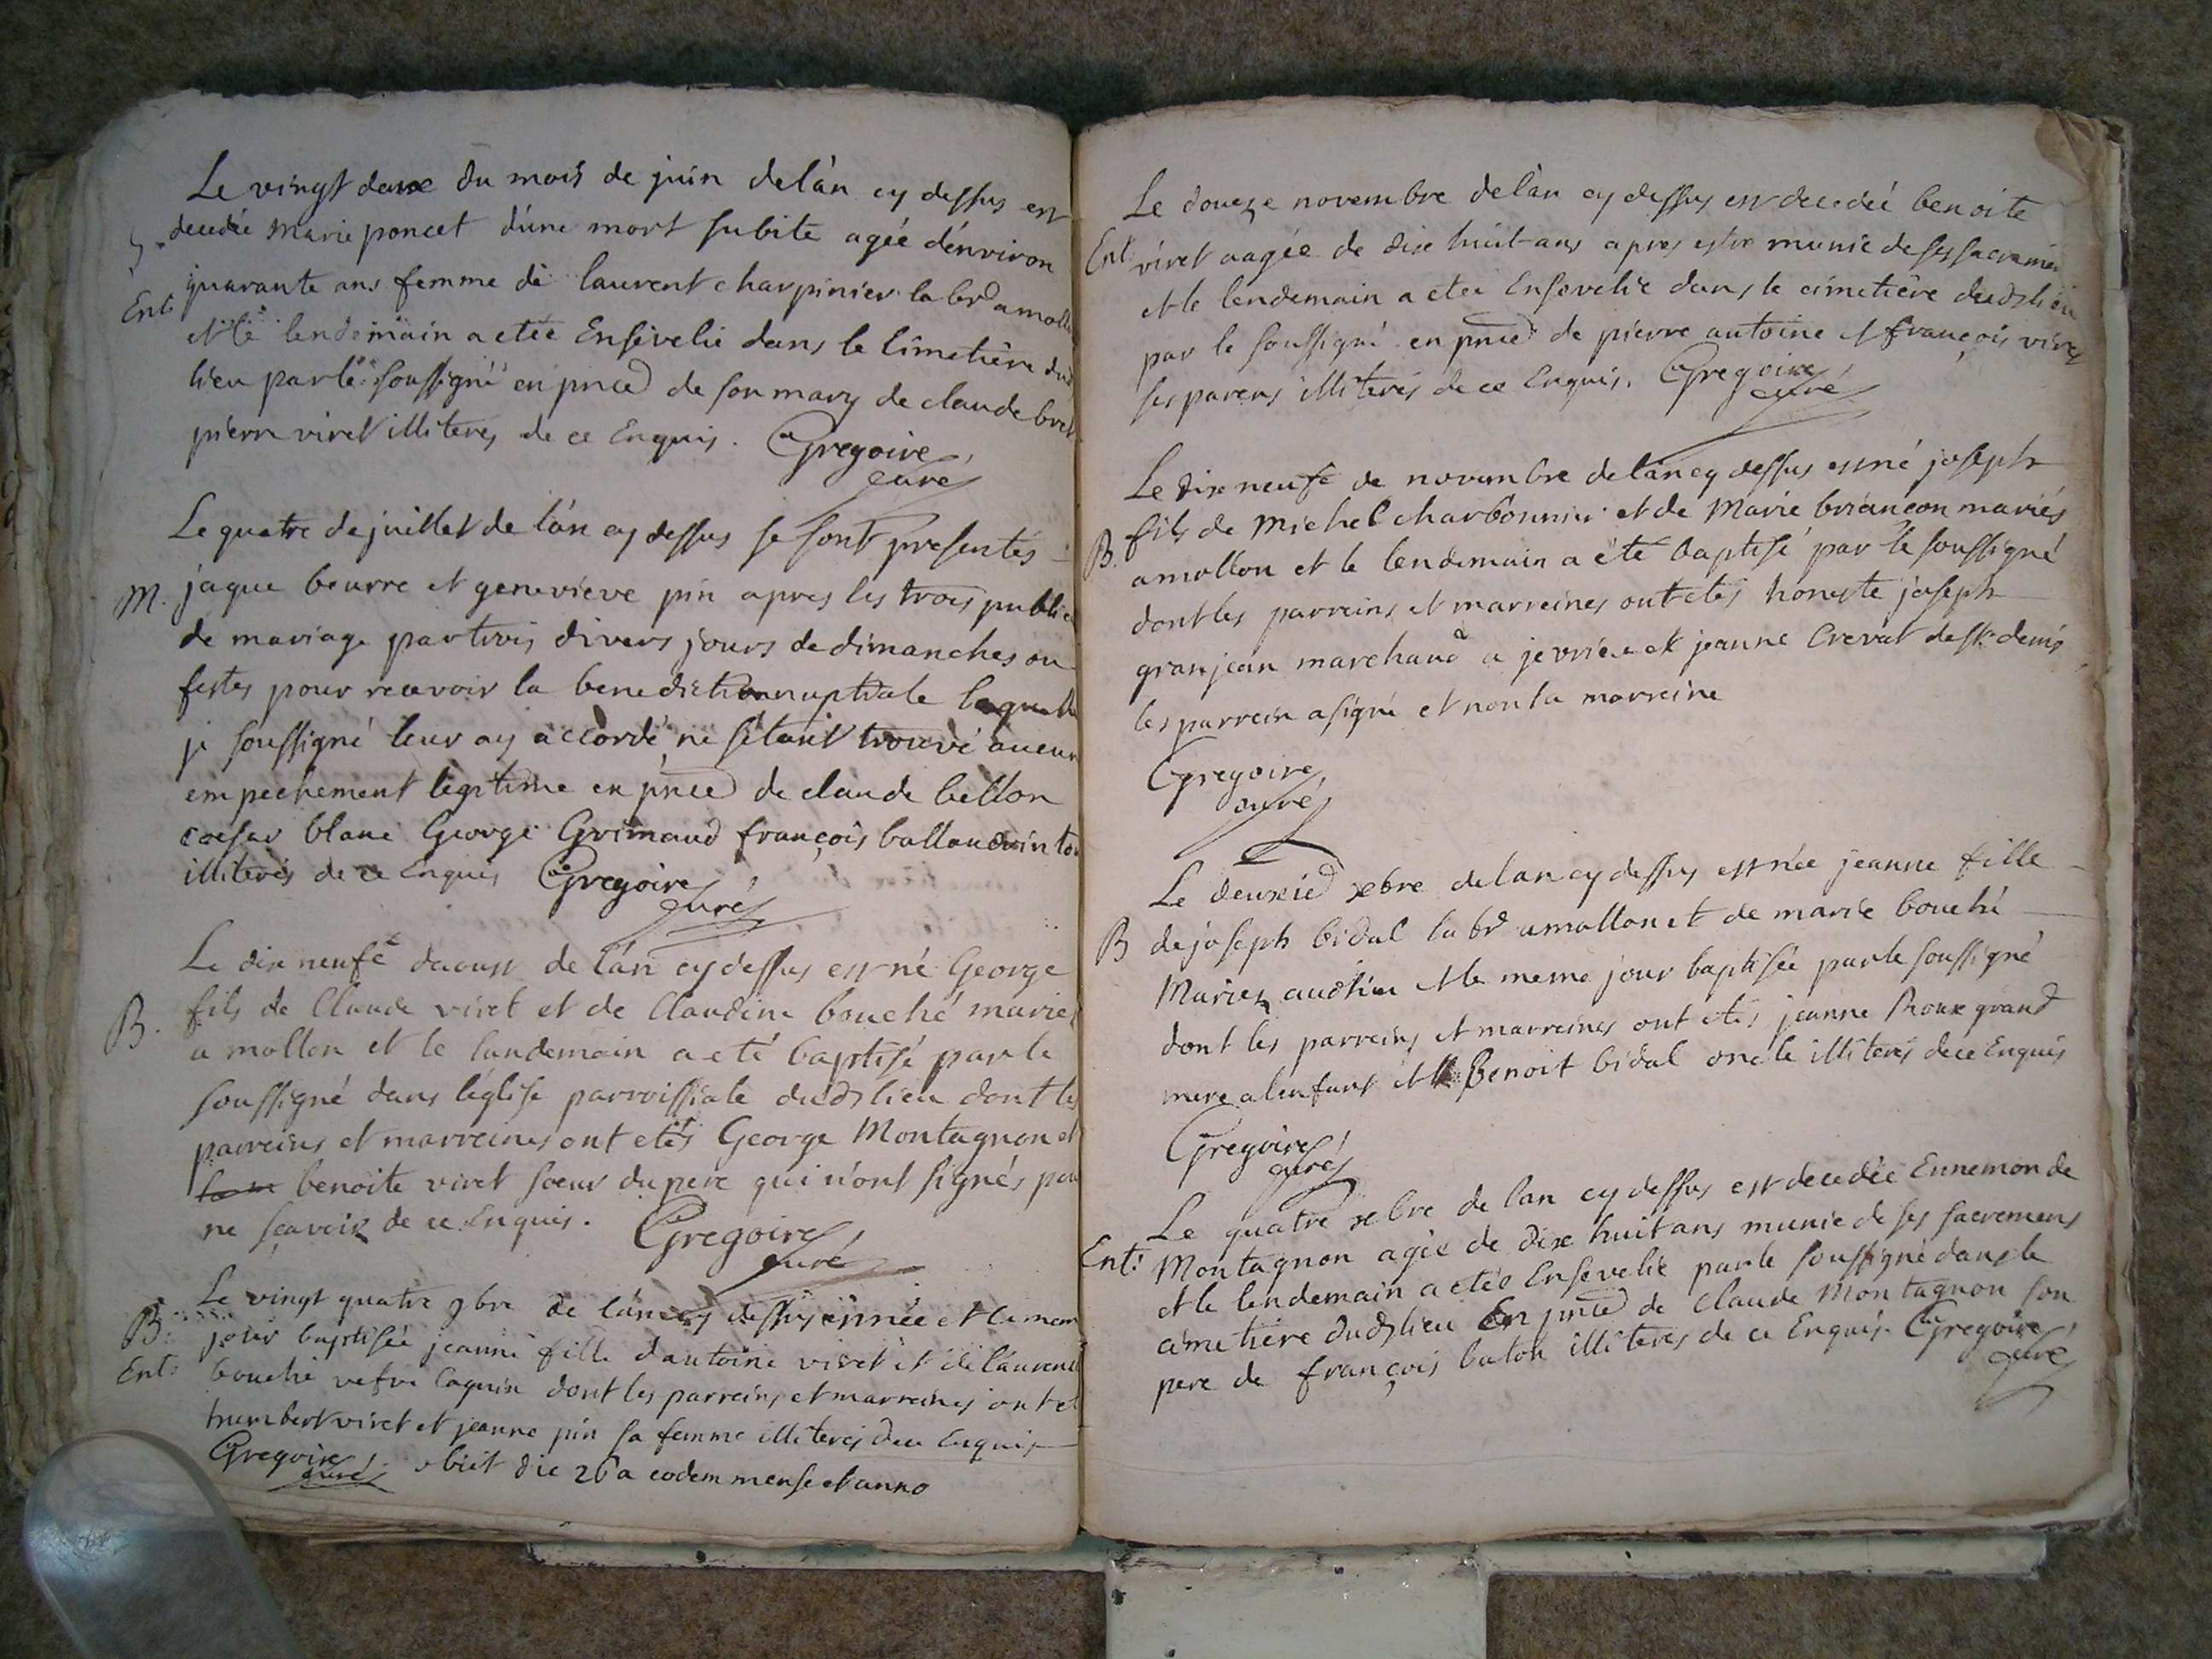 Le vingt deuxe du mois de juin delàn cy dessus est
decedée Marie poncet d'une mort subite agée d'environ
Ent. quarante ans femme de laurent charpinier labrd amollon
et le lendemain a etée Ensevelie dans le Cimetière dud
lieu par le soussigné en pnced de son mary de claude bret
pierre viret illiterés de ce Enquis. Gregoire
curé
Le quatre de juillet de l'àn cy dessus se sont presentés
M. jaque beurre et genevieve pin apres les trois public
de mariage par trois divers jours de dimanches ou
festes pour recevoir la benediction nuptiale laquelle
je soussigné leur ay accordé ne s'étant trouvé aucun
empechement legitime en pnced de claude bellon
coesar blanc George Grimaud françois ballandrin tou
illiterés de ce Enquis Gregoire
curé
Le dix neufe daoust de l'àn cy dessus est né George
B. fils de Claude viret et de Claudine bouché mariés
a mollon et le landemain a eté baptisé par le
soussigné dans l'église parroissiale dudt lieu dont les
parreins et marreines ont etés George Montagnon et
benoite viret soeur du pere qui n'ont signés pou
ne sçavoir de ce Enquis. Gregoire
curé
Le vingt quatre 9bre de l'àn cy dessus est née et le mem
B. jour baptisée jeanne fille d'antoine viret et de laurence
Ent. bouché vefve dont les parreins et marreines ont et
humbert viret et jeanne pin sa femme illiterés de ce Enquis
Gregoire obiit die 26a eodem mense et anno
curé
Le doueze novembre delàn cy dessus est decedée benoite
Ent. viret aagée de dix huit ans apres estre munie de ses sacremen
et le lendemain a etée Ensevelie dans le cimetière dudt lieu
par le soussigné en pnced de pierre antoine et françois viret
ses parens illiterés de ce Enquis. Gregoire
curé
Le dix neufe de novembre delàn cy dessus est né joseph
B. fils de Michel charbonnier et de Marie briançon mariés
amollon et le lendemain a été baptisé par le soussigné
dont les parreins et marreines ont etés honeste joseph
granjean marchand a jevrieu et jeanne Crevat de st. denis
les parrein a signé et non la marreine
Gregoire
curé
Le deuxied xbre delan cy dessus est née jeanne fille
B de joseph bidal labrd amollon et de marie bouché
Mariez audt lieu et le meme jour baptisée par le soussigné
dont les parreins et marreines ont etés jeanne Roux grand
mere a lenfant et Benoit bidal oncle illiterés de ce Enquis
Gregoire
curé
Le quatre xbre de lan cy dessus est decedée Ennemonde
Ent. Montagnon agée de dix huit ans munie de ses sacremens
et le lendemain a etée Ensevelie par le soussigné dans le
cimetière dudt lieu En pnced de Claude Montagnon son
pere de françois buton illiterés de ce Enquis. Gregoire
curé